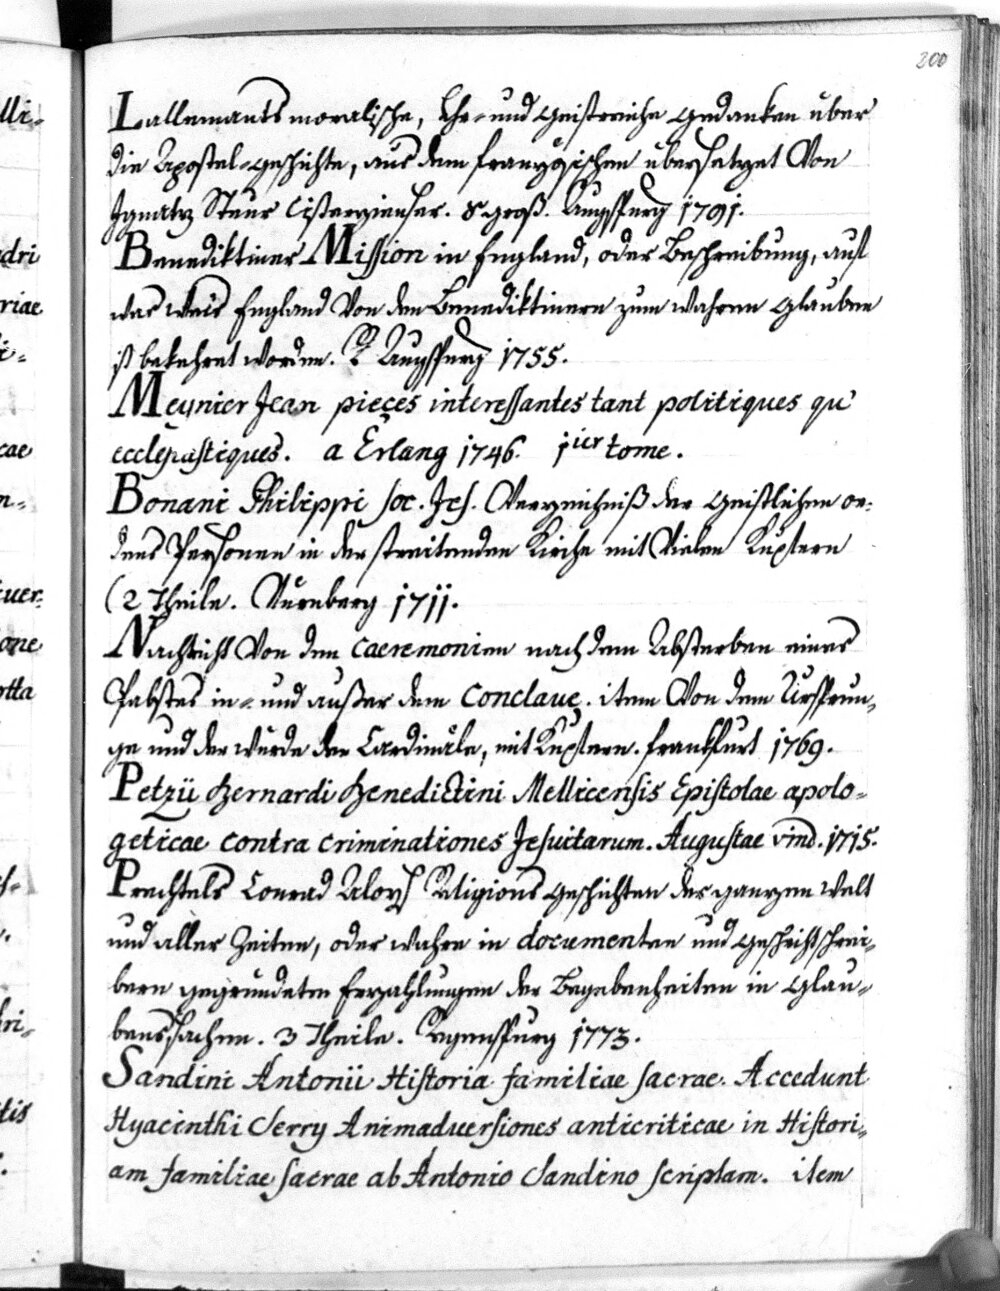 200
Lallemants moralische, Lehr- und Geistreiche Gedanken über
die Apostel-Geschichte, aus dem französischen übersetzet Von
Ignatz Steur Cisterzienser. 8 groß. Augspurg 1791.
Benediktiner Mission in England, oder Beschreibung, auf
was weis England Von den Benediktinern zum wahren Glauben
ist bekehret worden. Augspurg 1755.
Meynier Jean pieçes interessantes tant politiques qu'
ecclesiastiques. a Erlang 1746. 1ier tome.
Bonani Philippi Soc. Jes. Verzeichniß der Geistlichen or-
dens Personen in der streitenden Kirche mit Vielen Kupfern
(2 Theile. Nürnberg 1711.
Nachricht Von den Caeremonien nach dem Absterben eines
Pabstes in- und außer dem Conclave. item Von dem Ursprun-
ge und der würde der Cardinäle, mit Kupfern. Frankfurt 1769.
Petzii Bernardi Benedictini Mellicensis Epistolae apolo-
geticae contra criminationes Jesuitarum. Augustae vind. 1715.
Prechtels Conrad Aloys Religions Geschichten der ganzen Welt
und aller Zeiten, oder wahre in documenten und Geschichtschrei-
bern gegründeten Erzahlungen der Begebenheiten in Glau-
bens sachen. 3 Theile. Regenspurg 1773.
Sandini Antonii Historia familiae sacrae. Accedunt
Hyacinthi Serry Animadversiones anticriticae in Histori-
am familiae sacrae ab Antonio Sandino scriptam. item